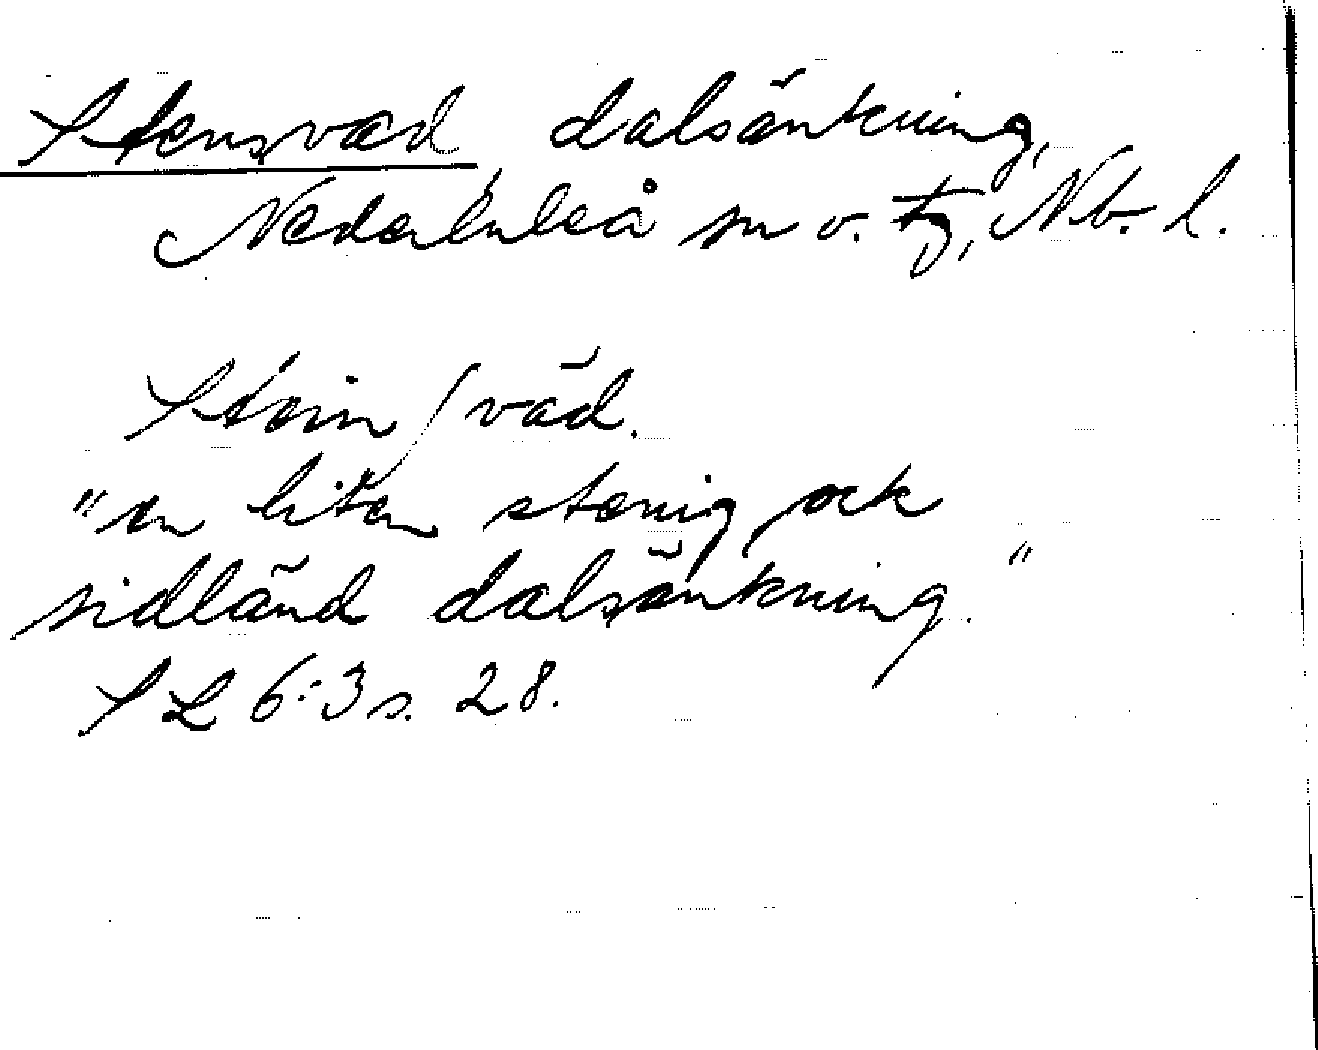 Stensvad dalsänkning,
Nederluleå sn o. tg, Nb. l.
Stein/väd.
"en liten stenig ock
sidländ dalsänkning."
SL 6:3 s. 28.